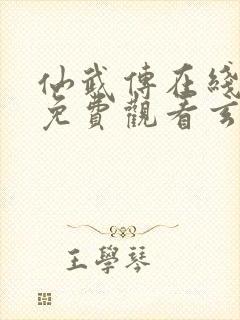 仙武傳在綫
免費觀看玄
王學琴